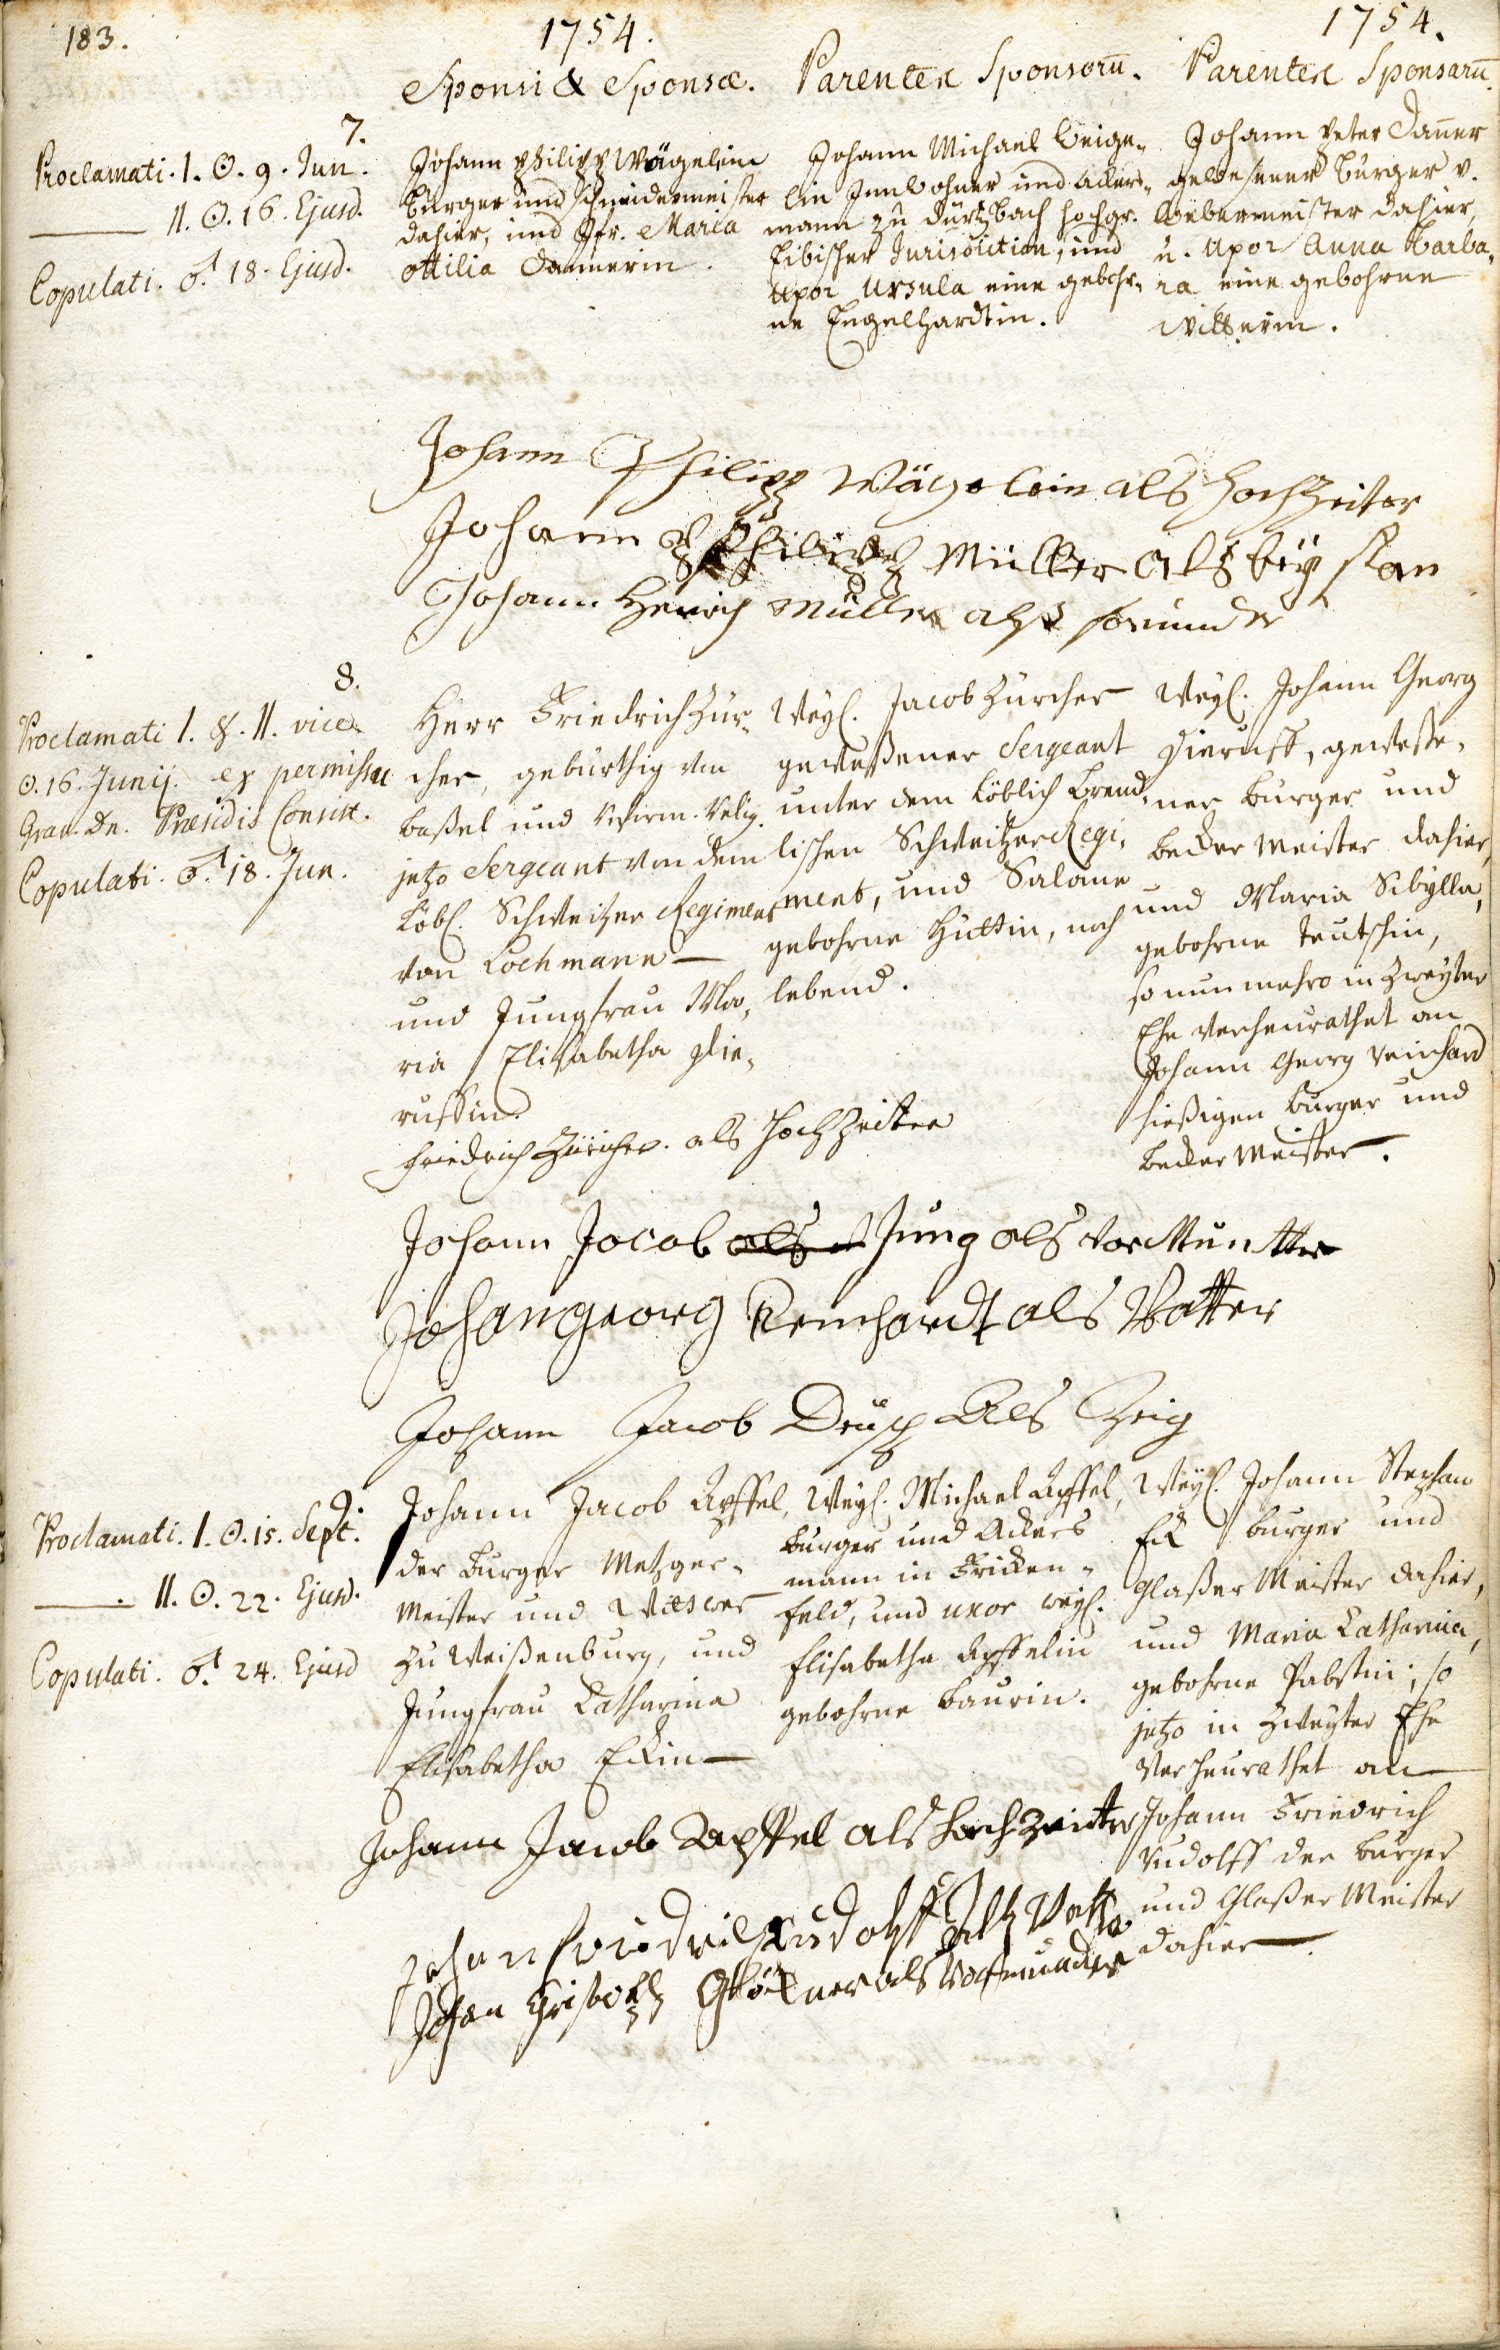 183.
1754.
1754.
Sponsi & Sponsæ.
Parentes Sponsorū.
Parentes Sponsarū.
7.
Proclamati. I. ☉. 9. Jun.
II. ☉. 16. Ejusd.
Copulati. ♂. 18. Ejusd.
Johann Philipp Wägelein
Burger und Schneidermeister
dahier, und Jfr. Maria
Ottilia Dannerin.
Johann Michael Weige-
lin Innwohner und Ackers-
mann zu Dürtzbach hochgr.
Jurisdiction, und
Uxor Ursula eine gebohr-
ne Engelhardtin.
Johann Peter Dan̄er
gewesener Burger v.
Webermeister dahier,
u. Uxor Anna Barba-
ra eine gebohrne
Johann Philipp Wägelein als Hochzeiter
Johann Philipp Müller als bey stan
Johann Henrich Müller alß
8.
Proclamati I. & II. vice
☉. 16. Junij. ex permissu
Grat. Dn. Præsidis Consist.
Copulati. ♂. 18. Jun.
Herr Friedrich Zür-
cher, gebürthig von
Baßel und Reform. Relig.
jetzo Sergeant von dem
Löbl. Schweitzer Regiment
von Lochmann
und Jungfrau Ma-
ria Elisabetha Die-
russin.
Weyl. Jacob Zürcher
geweßener Sergeant
unter dem Löblich Brend-
lischen Schweitzer Regi-
ment, und Salome
gebohrne Hüttin, noch
lebend.
Weyl. Johann Georg
Dierust, geweße-
ner Burger und
Becker Meister dahier,
und Maria Sibylla,
gebohrne Teutschin,
so nunmehro in Zweyter
Ehe verheurathet an
Johann Georg Reinhard
hießigen Burger und
Becker Meister.
Friedrich Züricher. als Hochzeiter
Johann Jacob als Jung als vor Muntter
Johan Georg Reinhardt als Vatter
Johann Jacob Deusch Als Zeig
9.
Proclamati. I. ☉. 15. Sept.
II. ☉. 22. Ejusd.
Copulati. ♂. 24. Ejusd
Johann Jacob Apffel,
der Burger Metzger-
Meister und Wittwer
zu Weißenburg, und
Jungfrau Catharina
Elisabetha Eckin
Weyl. Michael Apffel,
Burger und Ackers
mann in Fricken-
feld, und uxor weyl.
Elisabetha Apffelin
gebohrne Baurin.
Weyl. Johann Stephan
Eck burger und
Glaßer Meister dahier,
und Maria Catharina,
gebohrne Pabstin; so
jetzo in Zweyter Ehe
Verheurathet an
Johann Friedrich
Rudolff der Burger
und Glaßer Meister
dahier.
Johann Jacob Apffel als Hochzeiter
Johan Friedrich Rudolff Alß Vatter
Johan Chrisoph Glöckner als Vormunder